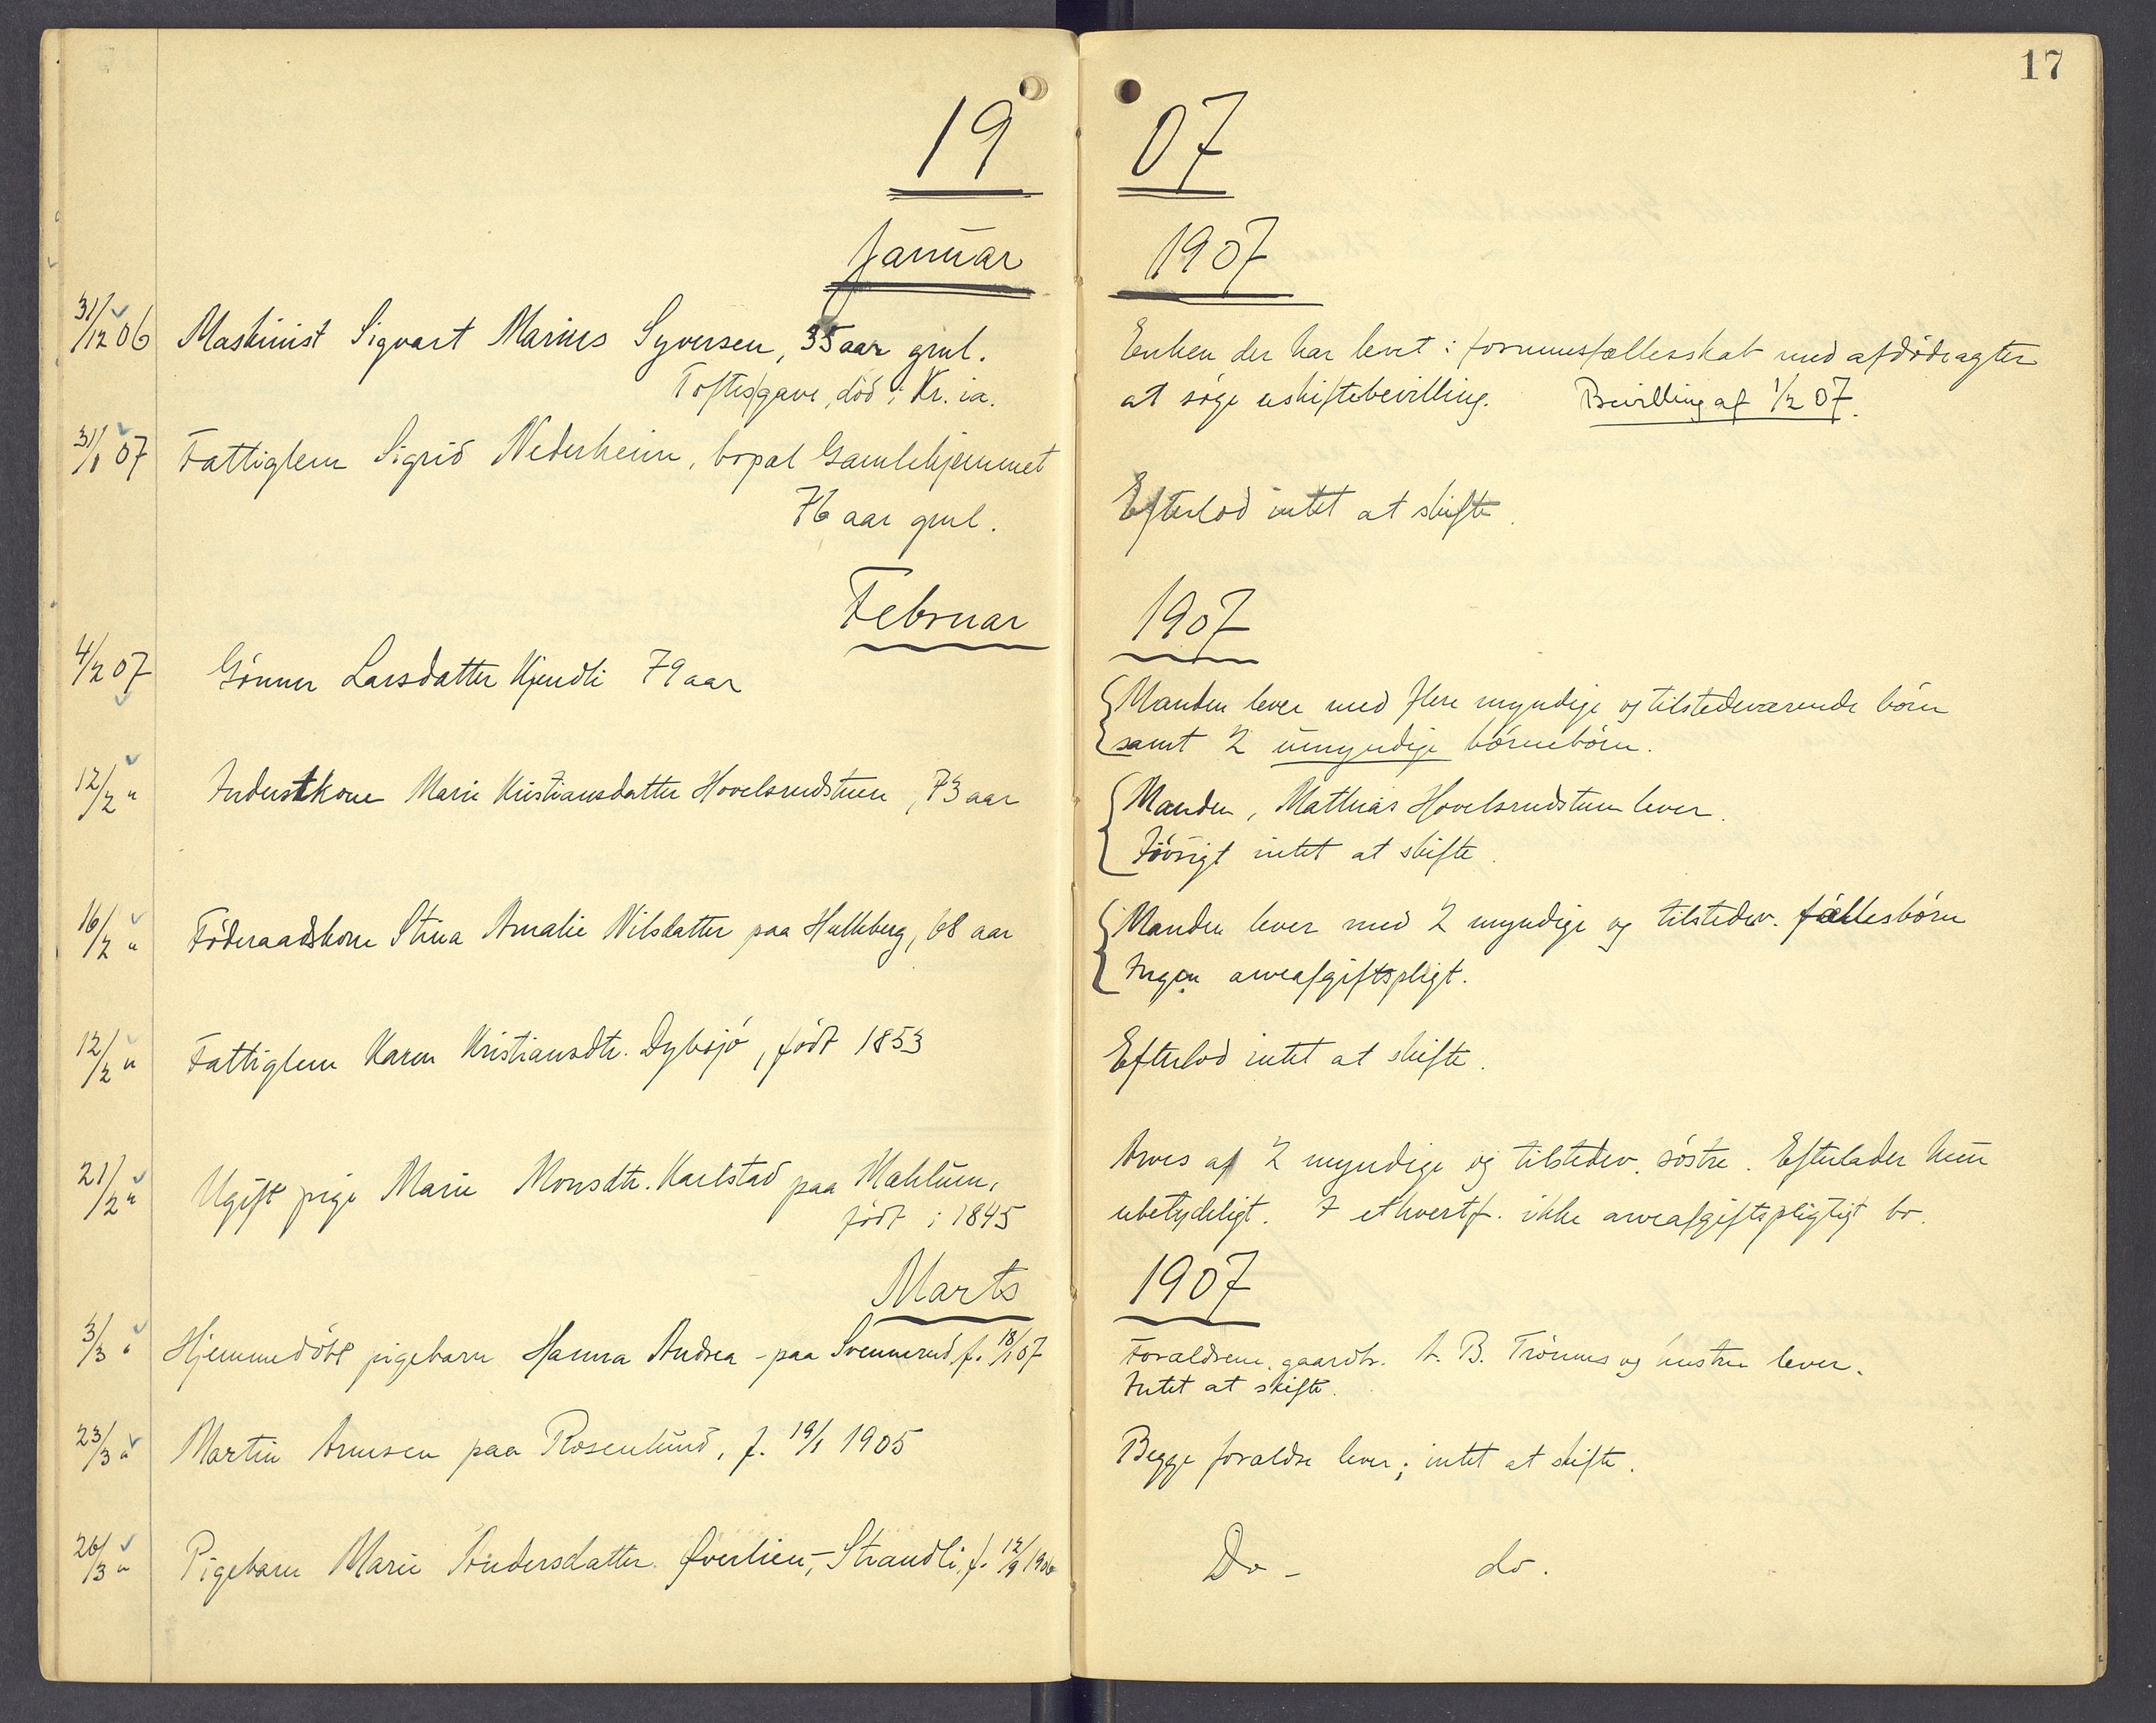 17
19 07
Januar 1907
31/12 06 Maskinist Sigvart Marius Syversen, 35 aar gml.
Toftesgave, død i Kr.ia.
Enken der har levet i formuesfællesskab med afdøde agter
at søge uskiftebevilling. Bevilling af 1/2 07.
31/1 07 Fattiglem Sigrid Nederheim, bopæl Gamlehjemmet
76 aar gml.
Efterlod intet at skifte.
Februar 1907
4/2 07 Gønner Larsdatter Kjendli 79 aar
Manden lever med flere myndige og tilstedeværende børn
samt 2 umyndige børnebørn.
12/2 " Inderstkone Marie Kristiansdatter Hovelsrudstuen, 73 aar
Manden, Mathias Hovelsrudstuen lever.
Iøvrigt intet at skifte.
16/2 " Føderaadskone Stina Amalie Nilsdatter paa Hulleberg, 68 aar
Manden lever med 2 myndige og tilstedev. fællesbørn
Ingen arveafgiftspligt.
12/2 " Fattiglem Karen Kristiansdtr. Dybsjø, født 1853
Efterlod intet at skifte.
21/2 " Ugift pige Marie Monsdtr. Karlstad paa Mæhlum,
født i 1845
Arves af 2 myndige og tilstedev. søstre. Efterlader kun
ubetydeligt. I ethvertf. ikke arveafgiftspligtigt bo.
Marts 1907
3/3 " Hjemmedøbt pigebarn Hanna Andrea - paa Svennerud f. 18/1 07
Forældrene, gaardbr. A. B. Trønnes og hustru lever.
Intet at skifte.
23/3 " Martin Arnesen paa Rosenlund, f. 19/1 1905
Begge forældre lever; intet at skifte.
26/3 " Pigebarn Marie Andersdatter Øverlien, - Strandli, f. 12/9 1906
Do - do.